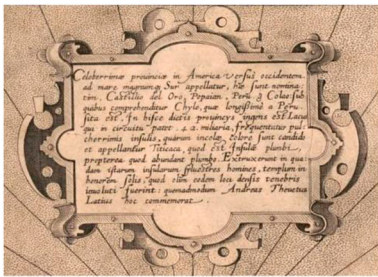 Celeberrimæ provinciæ in America versus occidentem
ad mare magnum Sur appellatur, hæ sunt nomina:
tim, Castilia del Oro, Popaian, Peru, & Colao: sub
quibus comprehenditur Chylo, quæ longißimè a Peru
sita est. In hisce dictis provincijs ingens est Lacus
qui in circuitu patet miliaria, frequentatur pul
cherrimis insulis, quarum incolæ, colore sunt candidi
et appellantur Titicaca, quod est Insulæ plumbi,
propterea quod abundant plumbo. Extruxerunt in qua
dam istarum insularum siluestres homines, templum in
honorem solis, quod olim eodem loci densis tenebris
inuoluti fuerint: quemadmodum Andreas Thevetus
Latius hoc commemorat.